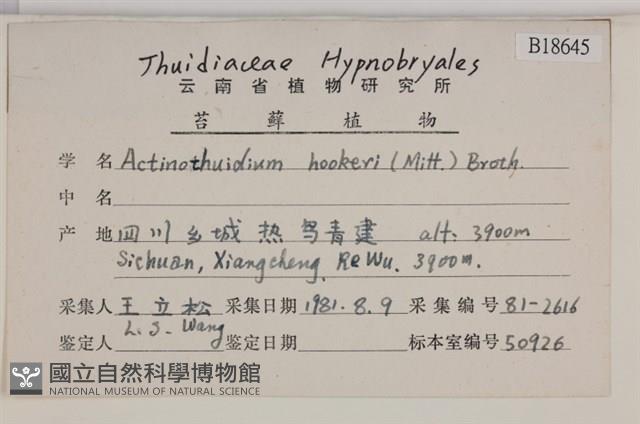 B18645
Thuidiaceae Hypnobryales
云南省植物研究所
苔藓植物
学名 Actinothuidium hookeri (Mitt.) Broth.
中名
产地 四川乡城热 青建 alt. 3900m
Sichuan, Xiangcheng, ReWu. 3900m.
采集人 王立松 采集日期 1981.8.9 采集编号 81-2616
L. S. Wang
鉴定人 鉴定日期 标本室编号 50926
國立自然科學博物館
NATIONAL MUSEUM OF NATURAL SCIENCE